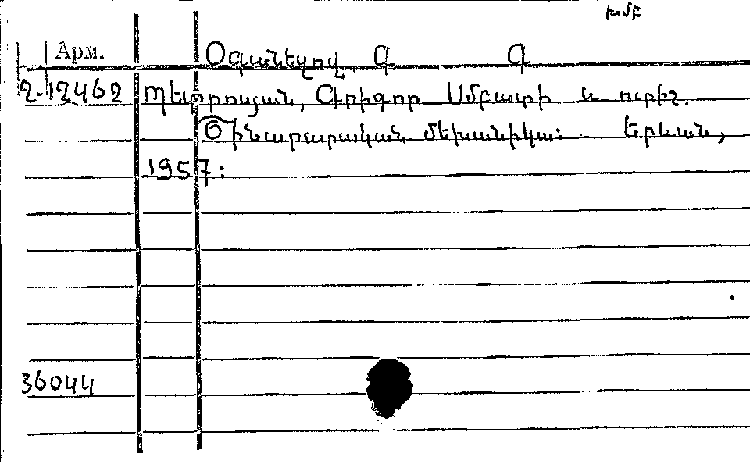 խմբ
Арм. Օգանեզով Գ Գ
2-12462 Պետրոսյան, Գրիգոր Սմբատի և ուրիշ.
Շինարարական մեխանիկա: Երևան,
1957:
36044